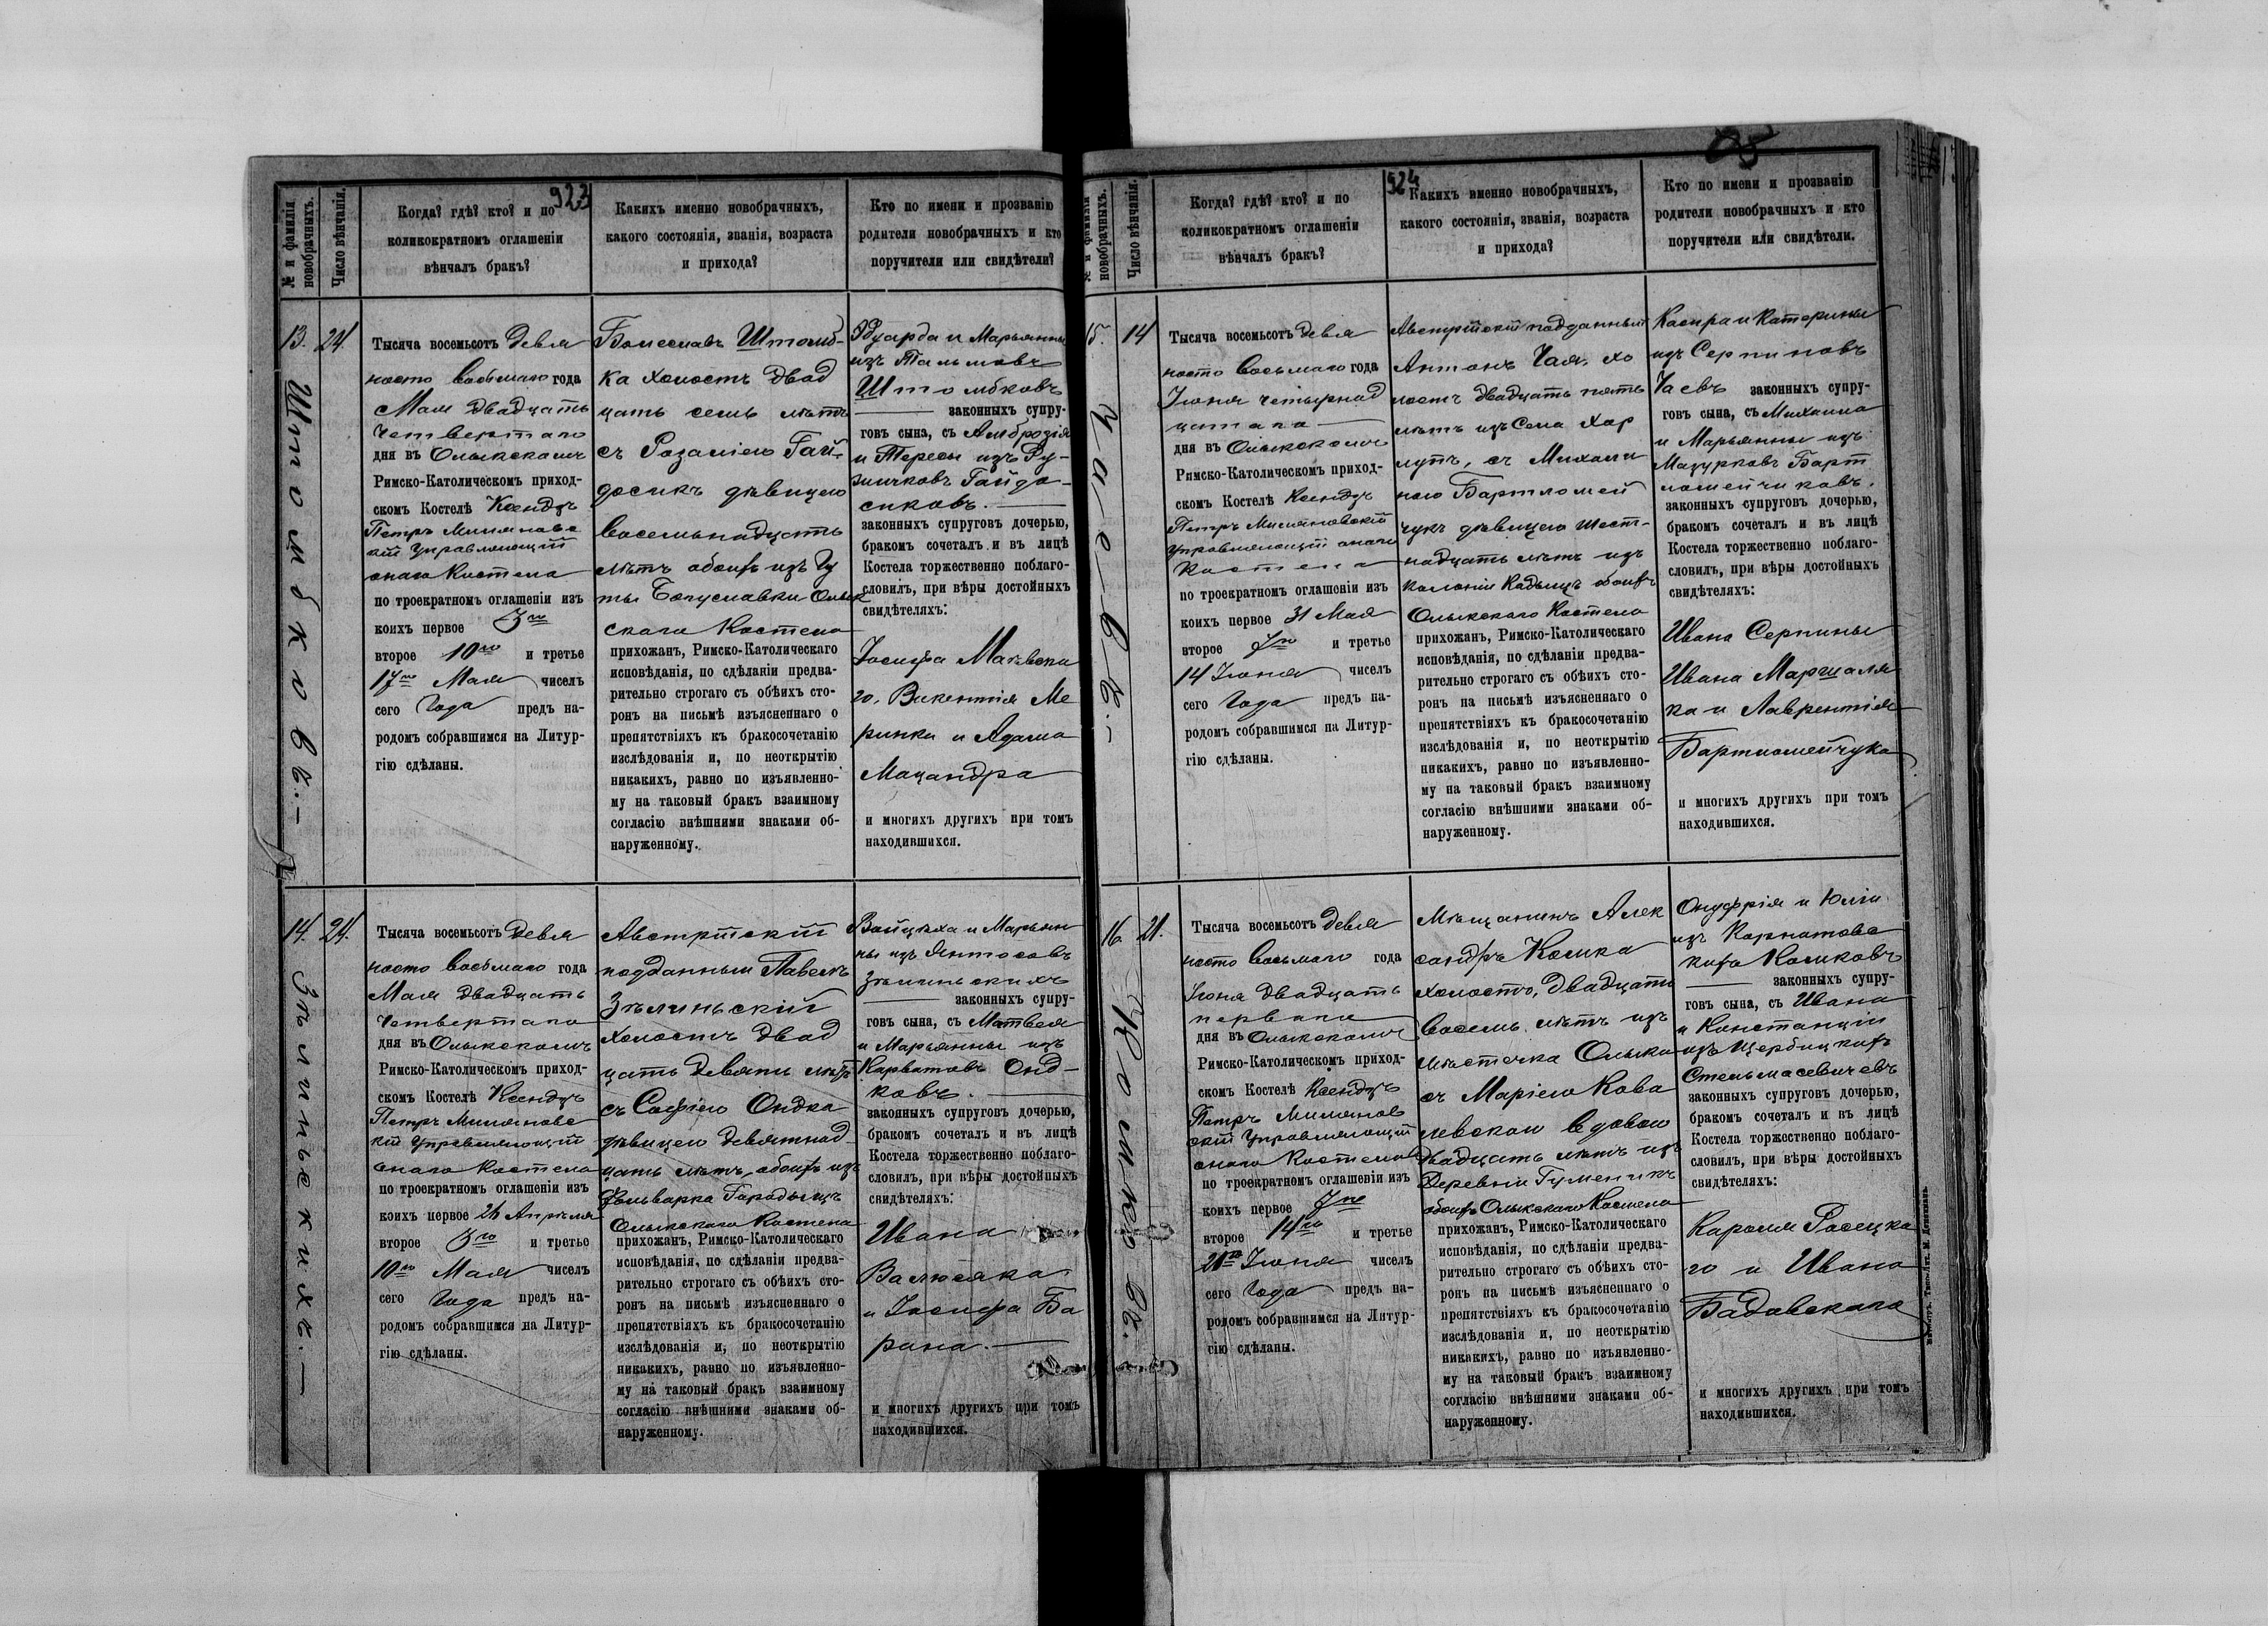 923
№ и фамилія новобрачныхъ.
Число вѣнчанія.
Когда? гдѣ? кто? и по
коликократномъ оглашеніи
вѣнчалъ бракъ?
Какихъ именно новобрачныхъ,
какого состоянія, званія, возраста
и прихода?
Кто по имени и прозванію
родители новобрачныхъ и кто
поручители или свидѣтели?
13.
Штомбковъ.-
24.
Тысяча восемьсотъ девя
носто восьмаго года
Мая двадцать
четвертаго
дня въ Олыкскомъ
Римско-Католическомъ приход-
скомъ Костелѣ Ксендзъ
Петръ Милянов
скій Управляющій
онаго Костела
по троекратномъ оглашеніи изъ
коихъ первое 3го
второе 10го и третье
17го Мая чиселъ
сего Года предъ на-
родомъ собравшимся на Литур-
гію сдѣланы.
Болеславъ Штомб-
ка холостъ двад
цать семь лѣтъ
съ Розаліею Гай-
досикъ дѣвицею
восемьнадцать
лѣтъ обоихъ изъ Гу
ты Богуславки Олык
скаго Костела
прихожанъ, Римско-Католическаго
исповѣданія, по сдѣланіи предва-
рительно строгаго съ обѣихъ сто-
ронъ на письмѣ изъясненнаго о
препятствіяхъ къ бракосочетанію
изслѣдованія и, по неоткрытію
никакихъ, равно по изъявленно-
му на таковый бракъ взаимному
согласію внѣшними знаками об-
наруженному.
Эдуарда и Марьянны
изъ
Штомбковъ
законныхъ супру-
говъ сына, съ Амброзія
и Тересы изъ Ру-
Гайдо-
сиковъ.
законныхъ супруговъ дочерью,
бракомъ сочеталъ и въ лицѣ
Костела торжественно поблаго-
словилъ, при вѣры достойныхъ
свидѣтеляхъ:
Іосифа Маевска
го, Викентія Ме
ринки и Адама
Мацандра
и многихъ другихъ при томъ
находившихся.
14.
Зѣлиньскихъ.-
24.
Тысяча восемьсотъ девя
носто восьмаго года
Мая двадцать
четвертаго
дня въ Олыкскомъ
Римско-Католическомъ приход-
скомъ Костелѣ Ксендзъ
Петръ Милянов
скій Управляющій
онаго Костела
по троекратномъ оглашеніи изъ
коихъ первое 26 Апрѣля
второе 3го и третье
10го Мая чиселъ
сего Года предъ на-
родомъ собравшимся на Литур-
гію сдѣланы.
Австрійскій
подданный Павелъ
Зѣлиньскій
холостъ двад
цать девять лѣтъ
съ Софіею Ондка
дѣвицею девятнад-
цать лѣтъ, обоихъ изъ
Фольварка Городыщъ
Олыкскаго Костела
прихожанъ, Римско-Католическаго
исповѣданія, по сдѣланіи предва-
рительно строгаго съ обѣихъ сто-
ронъ на письмѣ изъясненнаго о
препятствіяхъ къ бракосочетанію
изслѣдованія и, по неоткрытію
никакихъ, равно по изъявленно-
му на таковый бракъ взаимному
согласію внѣшними знаками об-
наруженному.
Войцѣха и Марьян
ны изъ Янтосовъ
Зѣлиньскихъ
законныхъ супру-
говъ сына, съ Матвея
и Марьянны изъ
Карватовъ Онд-
ковъ.
законныхъ супруговъ дочерью,
бракомъ сочеталъ и въ лицѣ
Костела торжественно поблаго-
словилъ, при вѣры достойныхъ
свидѣтеляхъ:
Ивана
Валюсяка
и Іосифа Ба
рана.
и многихъ другихъ при томъ
находившихся.
924
№ и фамилія новобрачныхъ.
Число вѣнчанія.
Когда? гдѣ? кто? и по
коликократномъ оглашеніи
вѣнчалъ бракъ?
Какихъ именно новобрачныхъ,
какого состоянія, званія, возраста
и прихода?
Кто по имени и прозванію
родители новобрачныхъ и кто
поручители или свидѣтели.
15.
Чаевъ.-
14
Тысяча восемьсотъ девя
носто восьмаго года
Іюня четырнад
цатаго
дня въ Олыкскомъ
Римско-Католическомъ приход-
скомъ Костелѣ Ксендзъ
Петръ Миляновскій
Управляющій онаго
Костела
по троекратномъ оглашеніи изъ
коихъ первое 31 Мая
второе 7го и третье
14 Іюня чиселъ
сего Года предъ на-
родомъ собравшимся на Литур-
гію сдѣланы.
Австрійскій подданный
Антонъ Чая, хо
лостъ двадцать пять
лѣтъ изъ Села Хор
лупъ, съ Михали
ною Бартломей
чукъ дѣвицею шест-
надцать лѣтъ изъ
колоніи Кадыщъ обоихъ
Олыкскаго Костела
прихожанъ, Римско-Католическаго
исповѣданія, по сдѣланіи предва-
рительно строгаго съ обѣихъ сто-
ронъ на письмѣ изъясненнаго о
препятствіяхъ къ бракосочетанію
изслѣдованія и, по неоткрытію
никакихъ, равно по изъявленно-
му на таковый бракъ взаимному
согласію внѣшними знаками об-
наруженному.
Каспра и Катерины
изъ Серпиновъ
Чаевъ законныхъ супру-
говъ сына, съ Михаила
и Марьянны изъ
Мазурковъ Барт
ломейчиковъ.
законныхъ супруговъ дочерью,
бракомъ сочеталъ и въ лицѣ
Костела торжественно поблаго-
словилъ, при вѣры достойныхъ
свидѣтеляхъ:
Ивана Серпины
Ивана Марцаля
ка и Лаврентія
Бартломейчука
и многихъ другихъ при томъ
находившихся.
16.
Коликовъ.
21.
Тысяча восемьсотъ девя
носто восьмаго года
Іюня двадцать
перваго
дня въ Олыкскомъ
Римско-Католическомъ приход-
скомъ Костелѣ Ксендзъ
Петръ Милянов
скій Управляющій
онаго Костела
по троекратномъ оглашеніи изъ
коихъ первое 7го
второе 14го и третье
21го Іюня чиселъ
сего Года предъ на-
родомъ собравшимся на Литур-
гію сдѣланы.
Мѣщанинъ Алек
сандръ Колика
холостъ, двадцать
восемь лѣтъ изъ
мѣстечка Олыки
съ Маріею Кова
левскою вдовою
двадцать лѣтъ изъ
Деревни Гуменикъ
обоихъ Олыкскаго Костела
прихожанъ, Римско-Католическаго
исповѣданія, по сдѣланіи предва-
рительно строгаго съ обѣихъ сто-
ронъ на письмѣ изъясненнаго о
препятствіяхъ къ бракосочетанію
изслѣдованія и, по неоткрытію
никакихъ, равно по изъявленно-
му на таковый бракъ взаимному
согласію внѣшними знаками об-
наруженному.
Онуфрія и Юліи
изъ Корнатовс
кихъ Коликовъ
законныхъ супру-
говъ сына, съ Ивана
и Констанціи
изъ Щербицкихъ
Стельмасевичевъ
законныхъ супруговъ дочерью,
бракомъ сочеталъ и въ лицѣ
Костела торжественно поблаго-
словилъ, при вѣры достойныхъ
свидѣтеляхъ:
Кароля Росецка
го и Ивана
Бадовскаго
и многихъ другихъ при томъ
находившихся.